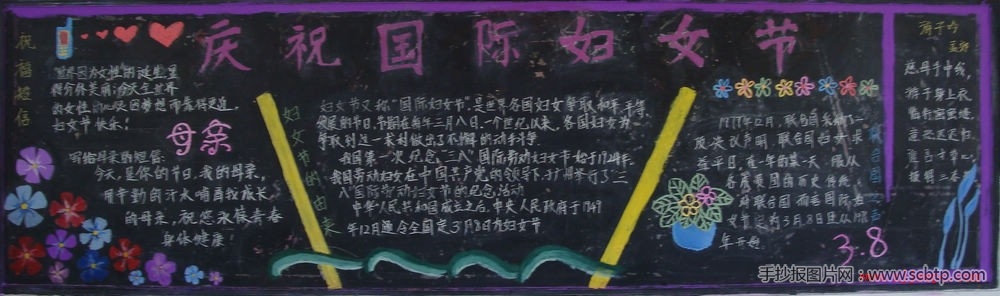 庆祝国际妇女节
祝福短信
世界因为女性的诞生显
得分外美丽;今天全世界
的女性的心灵因梦想而靠得更近,
妇女节快乐!
母亲
写给母亲的短信:
今天,是你的节日,我的母亲,
用辛勤的汗水哺育我成长
的母亲,祝您永保青春
身体健康!
妇女节的由来
妇女节又称“国际妇女节”,是世界各国妇女争取和平、平等、
发展的节日,节期在每年三月八日,一个世纪以来,各国妇女为
争取到这一权利做出了不懈的
我国第一次纪念“三八”国际劳动妇女节始于1924年,
我国劳动妇女在中国共产党的领导下,
八”国际劳动妇女节的纪念活动
中华人民共和国成立之后,中央人民政府于1949
年12月通令全国定3月8日为妇女节
1977年12月,联合国
议声明,联合国妇女
平日,在一年的某一天
各成员国的历史传统
联合国
女节定为3月8日
年开始
3.8
游子吟
孟郊
慈母手中线,
游子身上衣
临行密密缝,
意恐迟迟归
寸草心
报得三春
手抄报图片网:www.scbtp.com